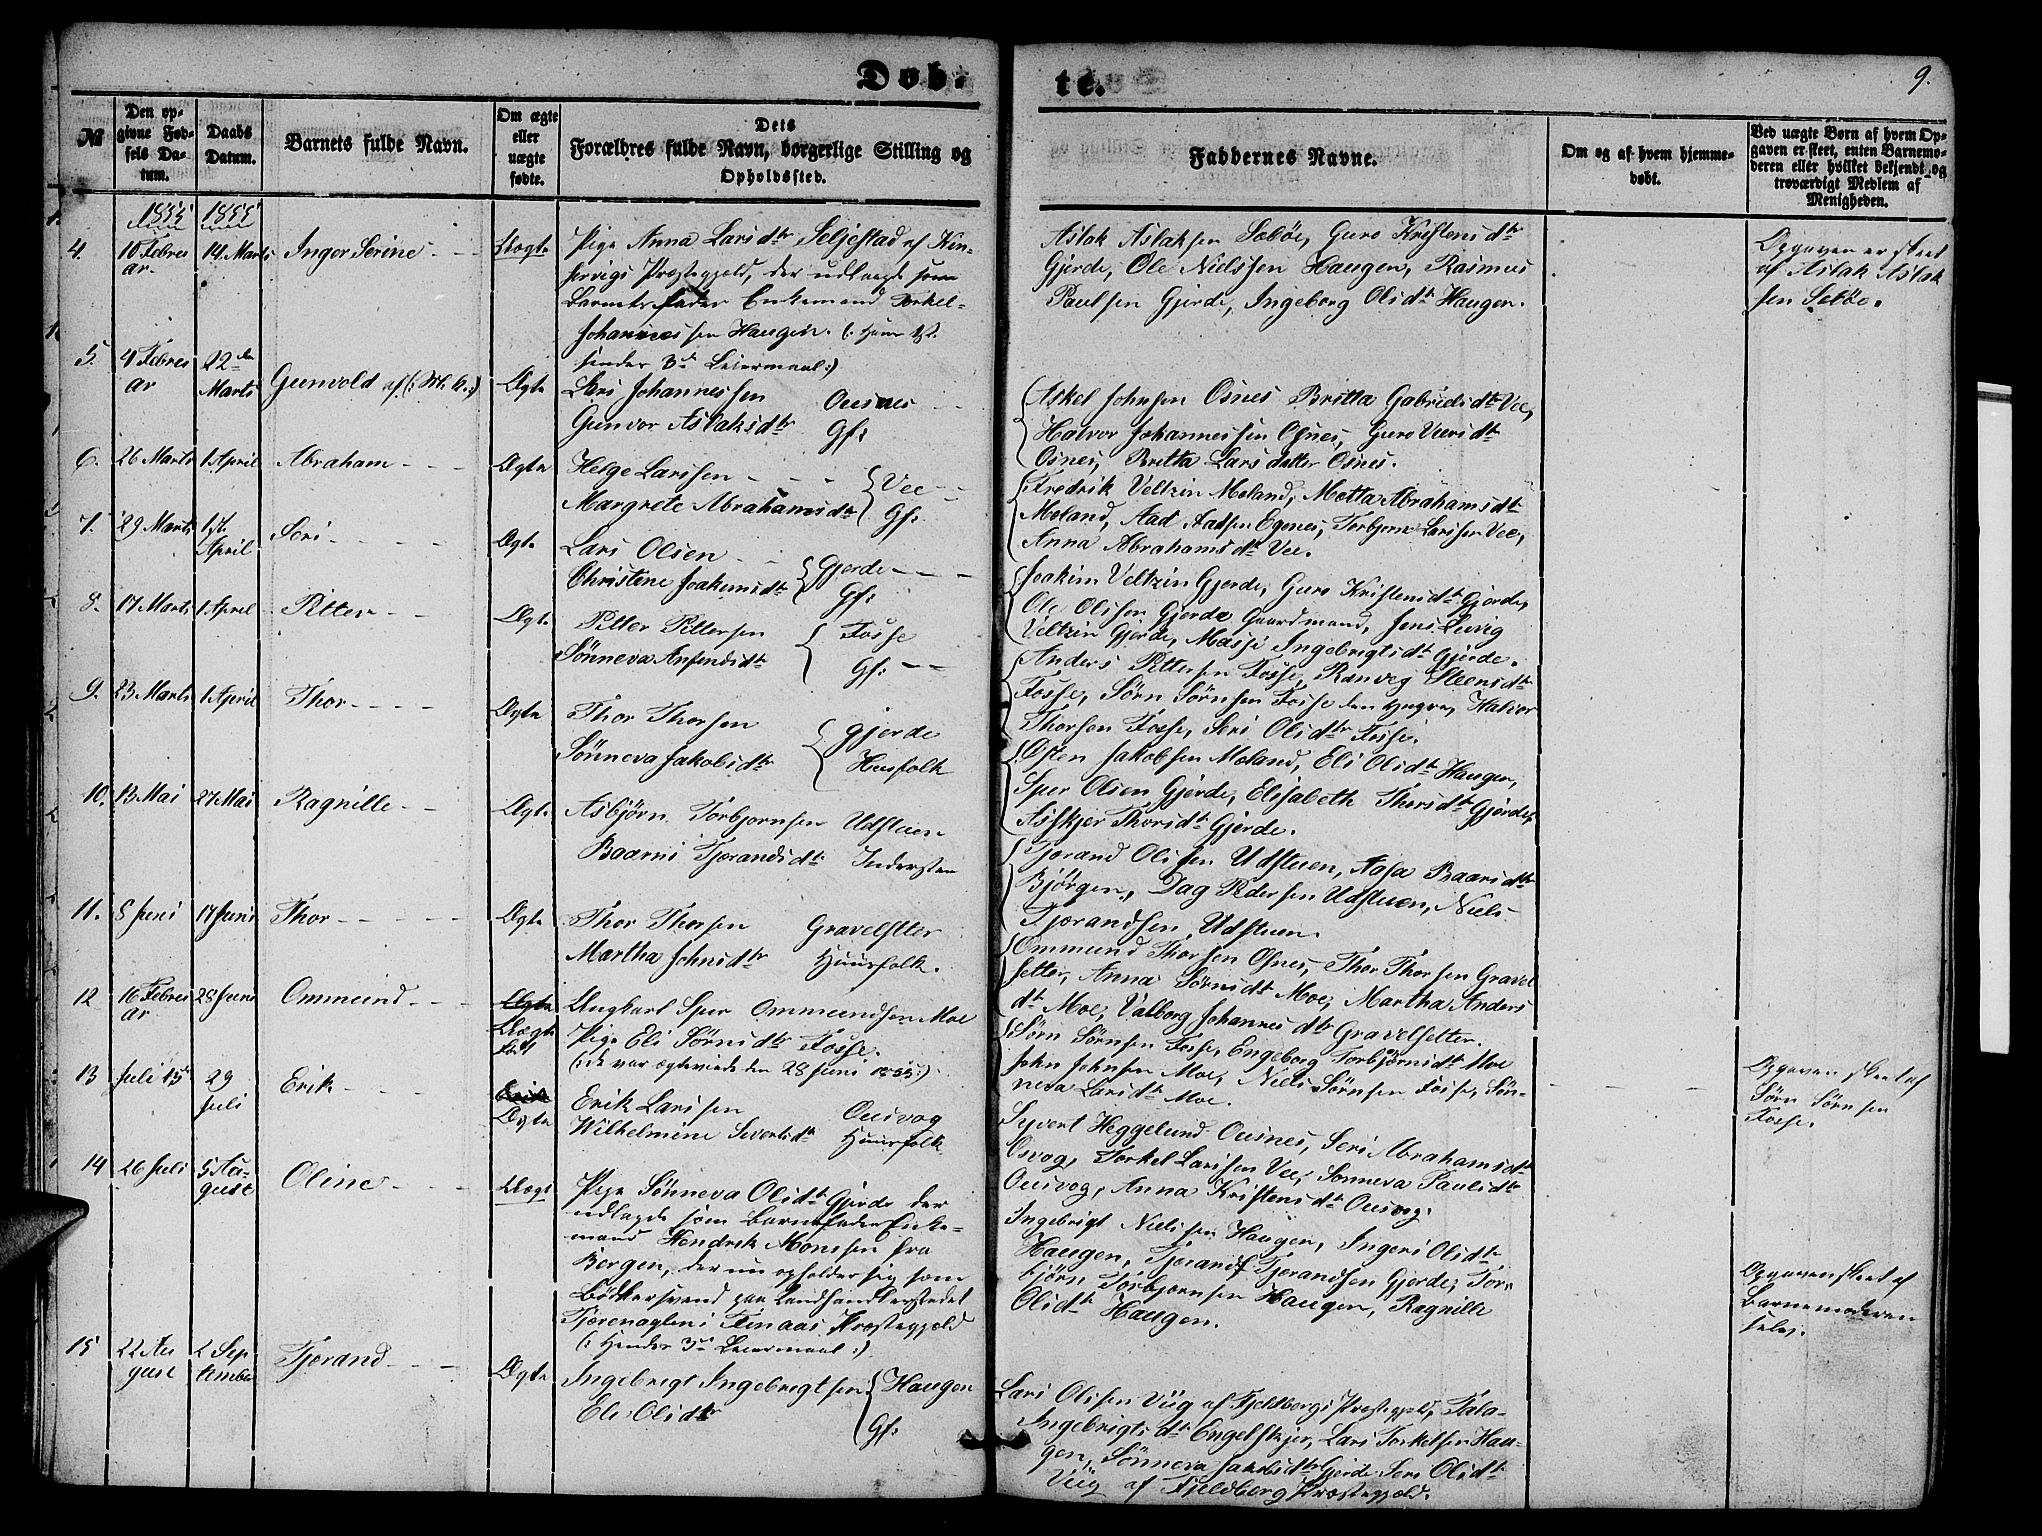 Døb-
te.
9.
№
Den op-
givne Fød-
sels Da-
tum.
Daabs
Datum.
Barnets fulde Navn.
Om ægte
eller
uægte
fødte.
Dets
Forældres fulde Navn, borgerlige Stilling og
Opholdssted.
Faddernes Navne.
Om og af hvem hjemme-
døbt.
Ved uægte Børn af hvem Op-
gaven er skeet, enten Barnemo-
deren eller hvilket bekjendt og
troværdigt Medlem af
Menigheden.
1855 1855
4. 10 Febru
ar 14 Marts Inger Serine Uægte
Pige Anna Larsdtr Seljestad af Kin-
servigs Præstegjeld, der udlagde som
Barnets fader Enkemand Torkel
Johannessen Haugen. (: Hans 1st
hendes 3die Leiermaal:)
Aslak Aslaksen Sæbøe, Guro Kristensdtr
Gjerde, Ole Nielssen Haugen, Rasmus
Paulsen Gjerde, Ingeborg Olsdtr Haugen.
Opgaven er skeet
af Aslak Aslak
sen Sebøe.
5. 4 Febru
ar 22den
Marts Gunvold af Ægte
Lars Johannessen Ousnes
Gunvor Aslaksdtr Gf:
Askel Johnsen Osnes Britta Gabrielsdtr Vee,
Halvor Johannessen Osnes, Guro
Osnes, Britta Larsdatter Osnes.
6. 26 Marts 1 April Abraham Ægte
Helge Larssen Vee
Margrete Abrahamsdtr Gf:
Fredrik Veltzin Moland, Metta Abrahamsdtr
Moland, Aad Aadsen Egenes, Torbjørn Larssen Vee,
Anna Abrahamsdtr Vee.
7. 29 Marts 1st
April Seri Ægte
Lars Olsen Gjerde
Christene Joakemsdtr Gf:
Joakim Veltzin Gjerde, Guro Kristensdtr Gjerde,
Ole Olssen Gjerde Gaardmand, Jens Luvig
Veltzin Gjerde, Massi Ingebrigtsdtr Gjerde.
8. 17 Marts 1 April Pitter Ægte
Pitter Pittersen Fosse
Sønneva Anfendsdtr Gf:
Anders Pittersen Fosse, Ranvig Steensdtr
Fosse, Sørn Sørnsen Fosse den yngre, Halvor
Thorsen Fosse, Seri Olsdtr Fosse.
9. 23 Marts 1 April Thor Ægte
Thor Thorsen Gjerde
Sønneva Jakobsdtr Husfolk
Østen Jakobsen Moland, Eli Olsdtr Haugen,
Sper Olsen Gjerde, Elisabeth Thorsdtr Gjerde,
Asskjer Thorsdtr Gjerde.
10. 13 Mai 27 Mai Ragnille Ægte
Asbjørn Torbjørnsen Udstuen
Baarni Tjørandsdtr Inderster
Tjørand Olssen Udstuen, Aasa Baarsdtr
Bjørgen, Dag Pedersen Udstuen, Niels
Tjørandsen Udstuen.
11. 8 Juni 17 Juni Thor Ægte
Thor Thorsen Gravelseter
Martha Johnsdtr Huusfolk.
Ommund Thorsen Osnes, Thor Thorsen Gravel
setter, Anna Sørnsdtr Moe, Martha Anders
dtr Moe, Valborg Johannesdtr Gravelsetter.
12 16 Febru
ar 28 Juni Ommund Ægte
Uægte
født
Ungkarl Sper Ommundsen Moe
Pige Eli Sørnsdtr Fosse.
(: de var ægteviede den 28 Juni 1855:)
Sørn Sørnsen Fosse, Engeborg Torbjørnsdtr Moe
John Johnsen Moe, Niels Sørnsen Fosse, Søn-
neva Larsdtr Moe.
Opgaven skeet af
Sørn Sørnsen
Fosse.
13 Juli 15de 29
Juli Erik Ægte
Erik Larssen Ousvog
Wilhelmine Sivertsdtr Huusfolk
Syvert Heggelund Ousnes, Seri Abrahamsdtr
Osvog, Torkel Larssen Vee, Sønneva Paulsdtr
Ousvog, Anna Kristensdtr Ousvog.
14 26 Juli 5 Au-
gust Oline Uægt
Pige Sønneva Olsdtr Gjerde der
udlagde som Barnefader Enke-
mand Hendrik Monssen fra
Bergen, der nu opholder sig som
Bødkersvend paa Landhandlerstedet
Tjærenaglen i Finaas Præstegjeld
(: Hendes 3die Leiermaal:)
Ingebrigt Nielssen Haugen, Ingeri Olsdtr
Haugen, Tjørand Tjørandsen Gjerde, Tor-
bjørn Torbjørnsen Haugen, Ragnille
Olsdtr Haugen.
Opgaven skeet af
Barnemoderen
selv.
15 22 Au
gust 2 Sep
tember Tjørand Ægte
Ingebrigt Ingebrigtsen Haugen
Eli Olsdtr Gf:
Lars Olssen Viig af Fjeldbergs Præstegjeld, Tala-
Ingebrigtsdtr Engelskjer, Lars Torkelsen Hau-
gen, Sønneva Jakobsdtr Gjerde Seri Olsdtr
Viig af Fjeldberg Præstegjeld.